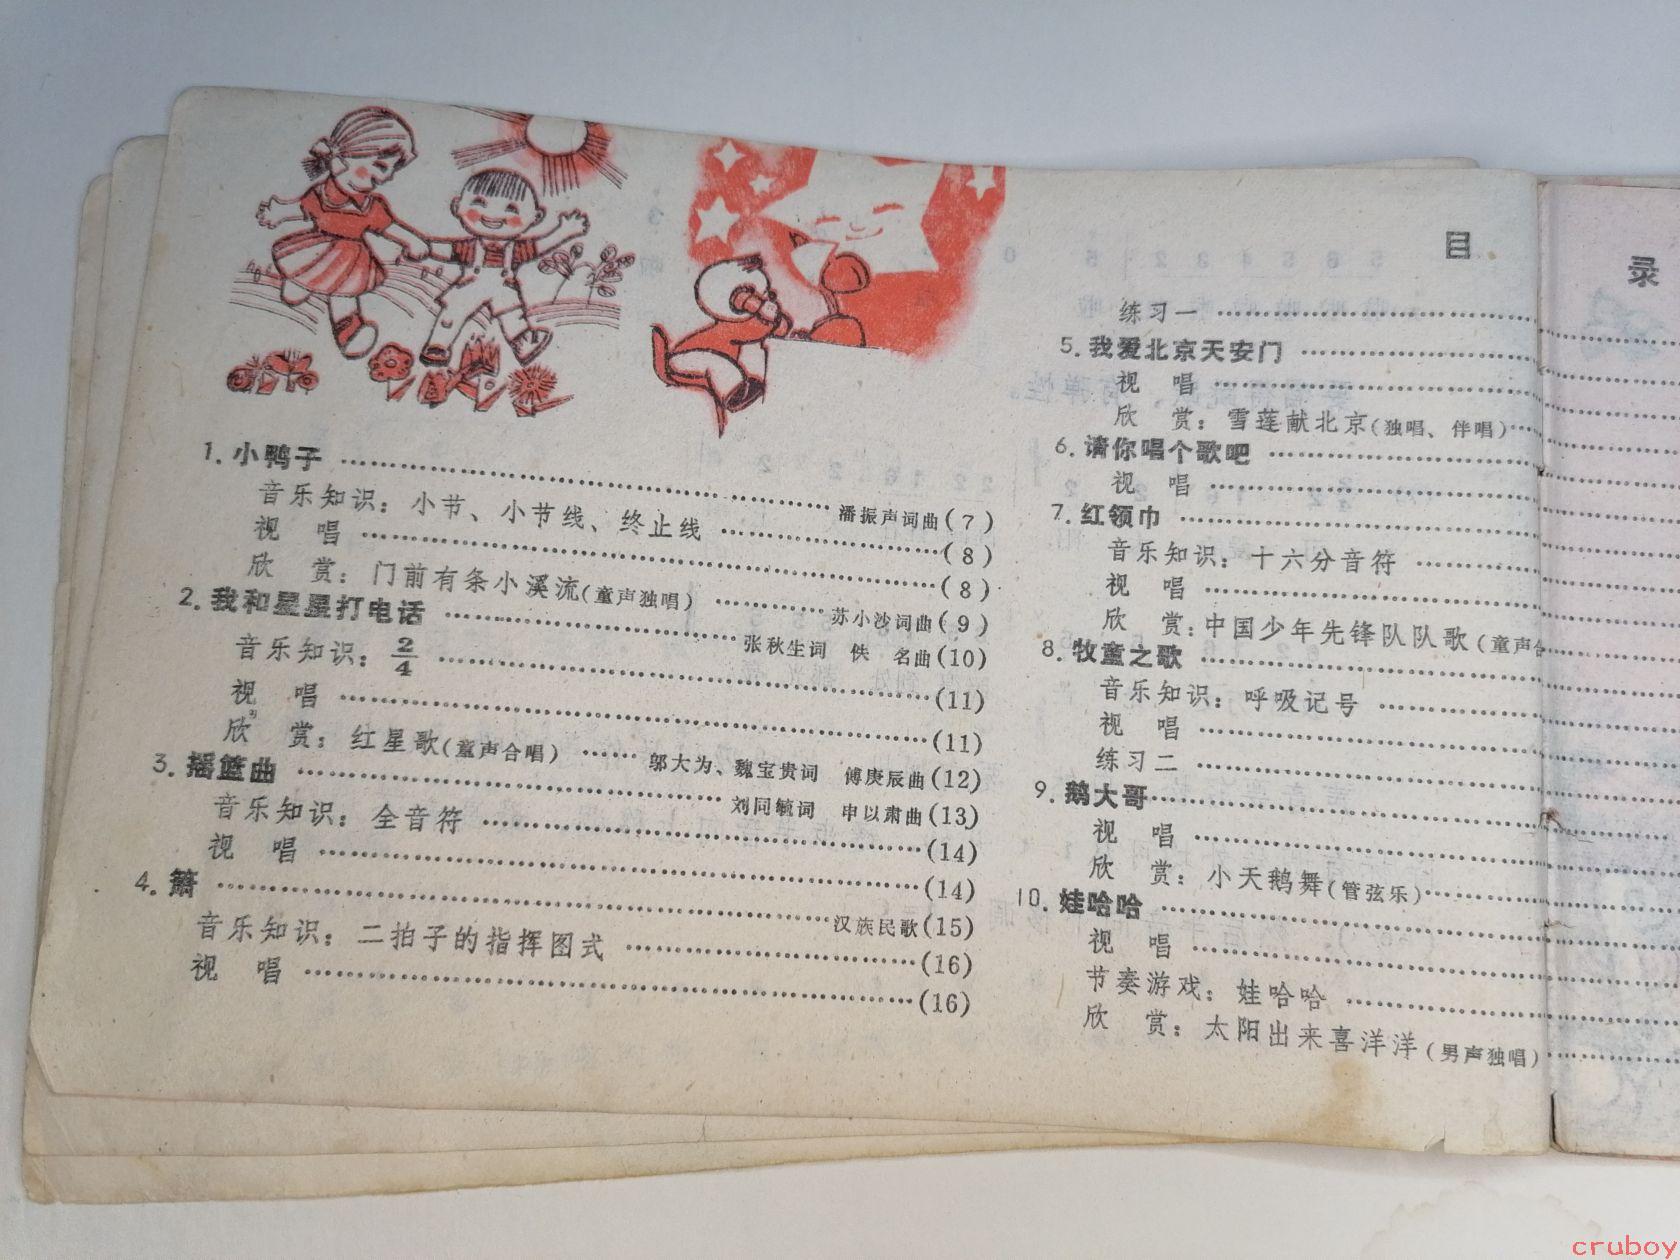 目录
1. 小鸭子 …… 潘振声词曲(7)
音乐知识：小节、小节线、终止线 ……(8)
视 唱 ……(8)
欣 赏：门前有条小溪流(童声独唱) …… 苏小沙词曲(9)
2. 我和星星打电话 …… 张秋生词 佚 名曲(10)
音乐知识：2/4 ……(11)
视 唱 ……(11)
欣 赏：红星歌(童声合唱) …… 邬大为、魏宝贵词 傅庚辰曲(12)
3. 摇篮曲 …… 刘同毓词 申以肃曲(13)
音乐知识：全音符 ……(14)
视 唱 ……(14)
4. 箫 …… 汉族民歌(15)
音乐知识：二拍子的指挥图式 ……(16)
视 唱 ……(16)
练习一 ……
5. 我爱北京天安门 ……
视 唱 ……
欣 赏：雪莲献北京(独唱、伴唱) ……
6. 请你唱个歌吧 ……
视 唱 ……
7. 红领巾 ……
音乐知识：十六分音符 ……
视 唱 ……
欣 赏：中国少年先锋队队歌(童声合
8. 牧童之歌 ……
音乐知识：呼吸记号 ……
视 唱 ……
练习二 ……
9. 鹅大哥 ……
视 唱 ……
欣 赏：小天鹅舞(管弦乐) ……
10. 娃哈哈 ……
视 唱 ……
节奏游戏：娃哈哈 ……
欣 赏：太阳出来喜洋洋(男声独唱) ……
cruboy